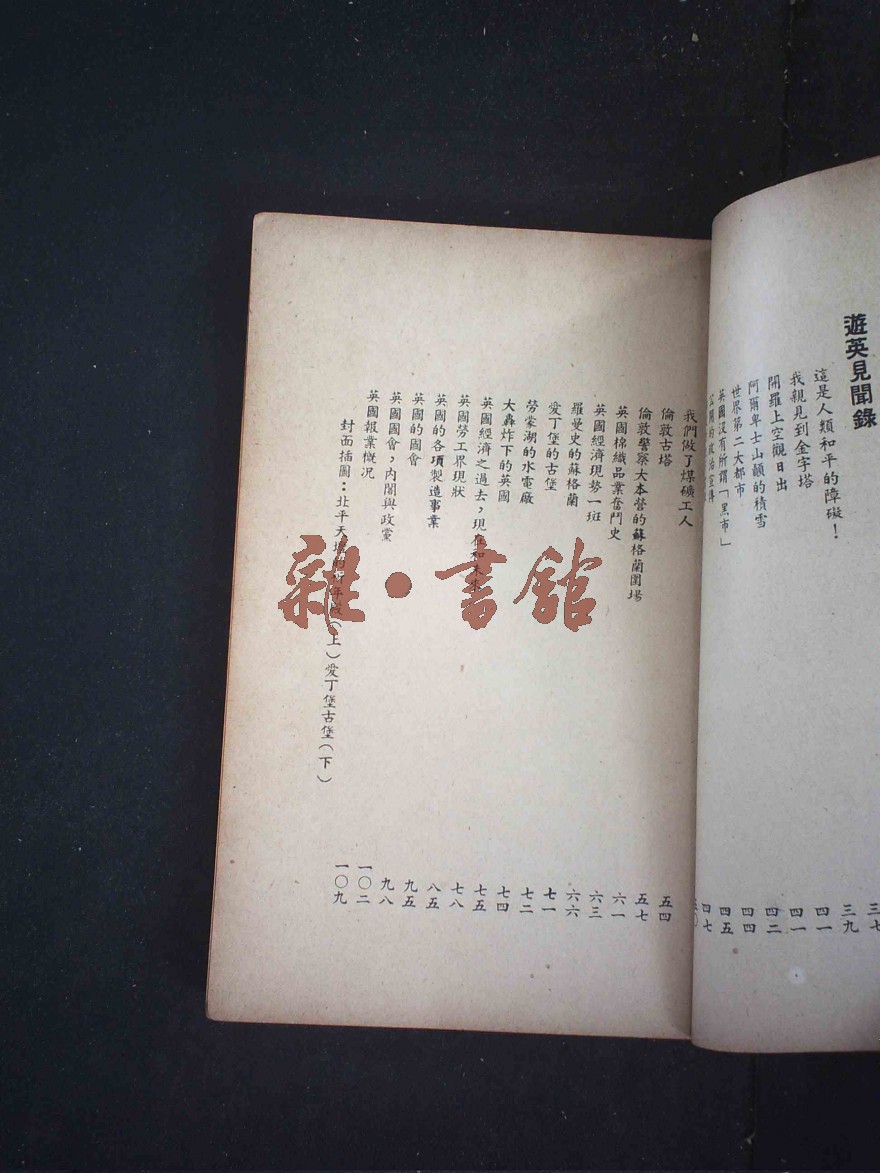 遊英見聞錄
這是人類和平的障礙！
我親見到金字塔
開羅上空觀日出
阿爾卑士山巔的積雪
世界第二大都市
英國沒有所謂「黑市」
公開的政治宣傳
三七
三九
四一
四一
四二
四四
四五
四七
五〇
我們做了煤礦工人
倫敦古塔
倫敦警察大本營的蘇格蘭圍場
英國棉織品業奮鬥史
英國經濟現勢一班
羅曼史的蘇格蘭
愛丁堡的古堡
勞蒙湖的水電廠
大轟炸下的英國
英國經濟之過去，現在和未來
英國勞工界現狀
英國的各項製造事業
英國的國會
英國國會，內閣與政黨
英國報業概況
封面插圖：北平天壇的祈年殿（上）愛丁堡古堡（下）
五四
五七
六一
六三
六六
七一
七二
七四
七五
七八
八五
九五
九八
一〇二
一〇九
雜·書館